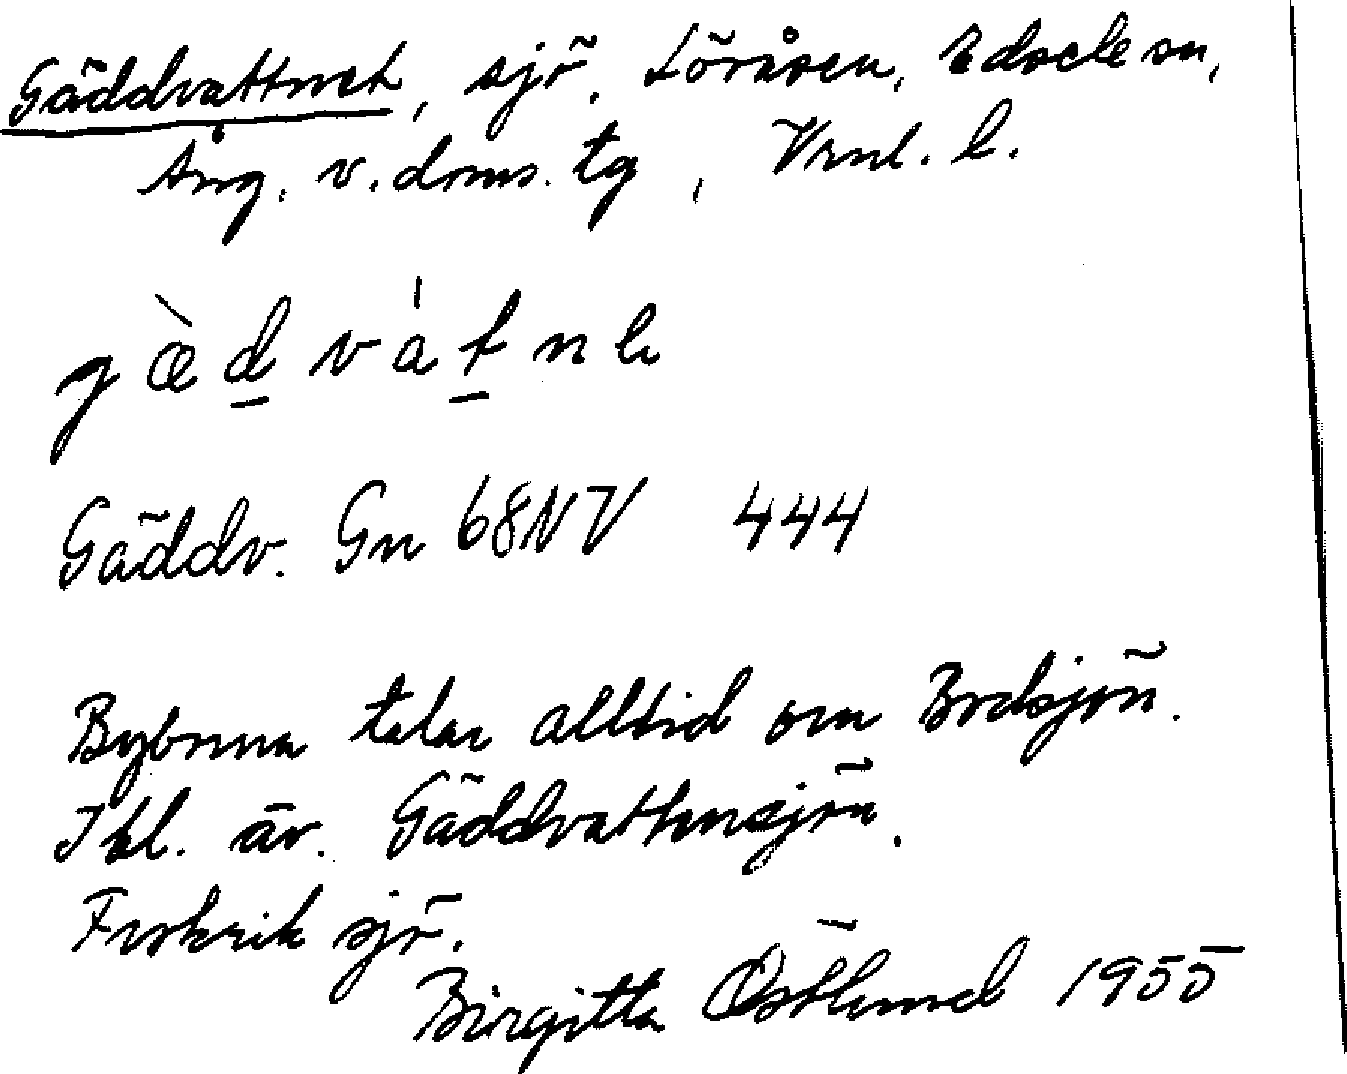 Gäddvattnet, sjö, Löråsen, Edsele sn,
Ång. v. doms. tg, Vrnl. l.
gæ̀d vátnе
Gäddv. Gn 68NV 444
Byborna talar alltid om Bodsjön.
Ibl. äv. Gäddvattensjön.
Fiskrik sjö.
Birgitta Östlund 1955